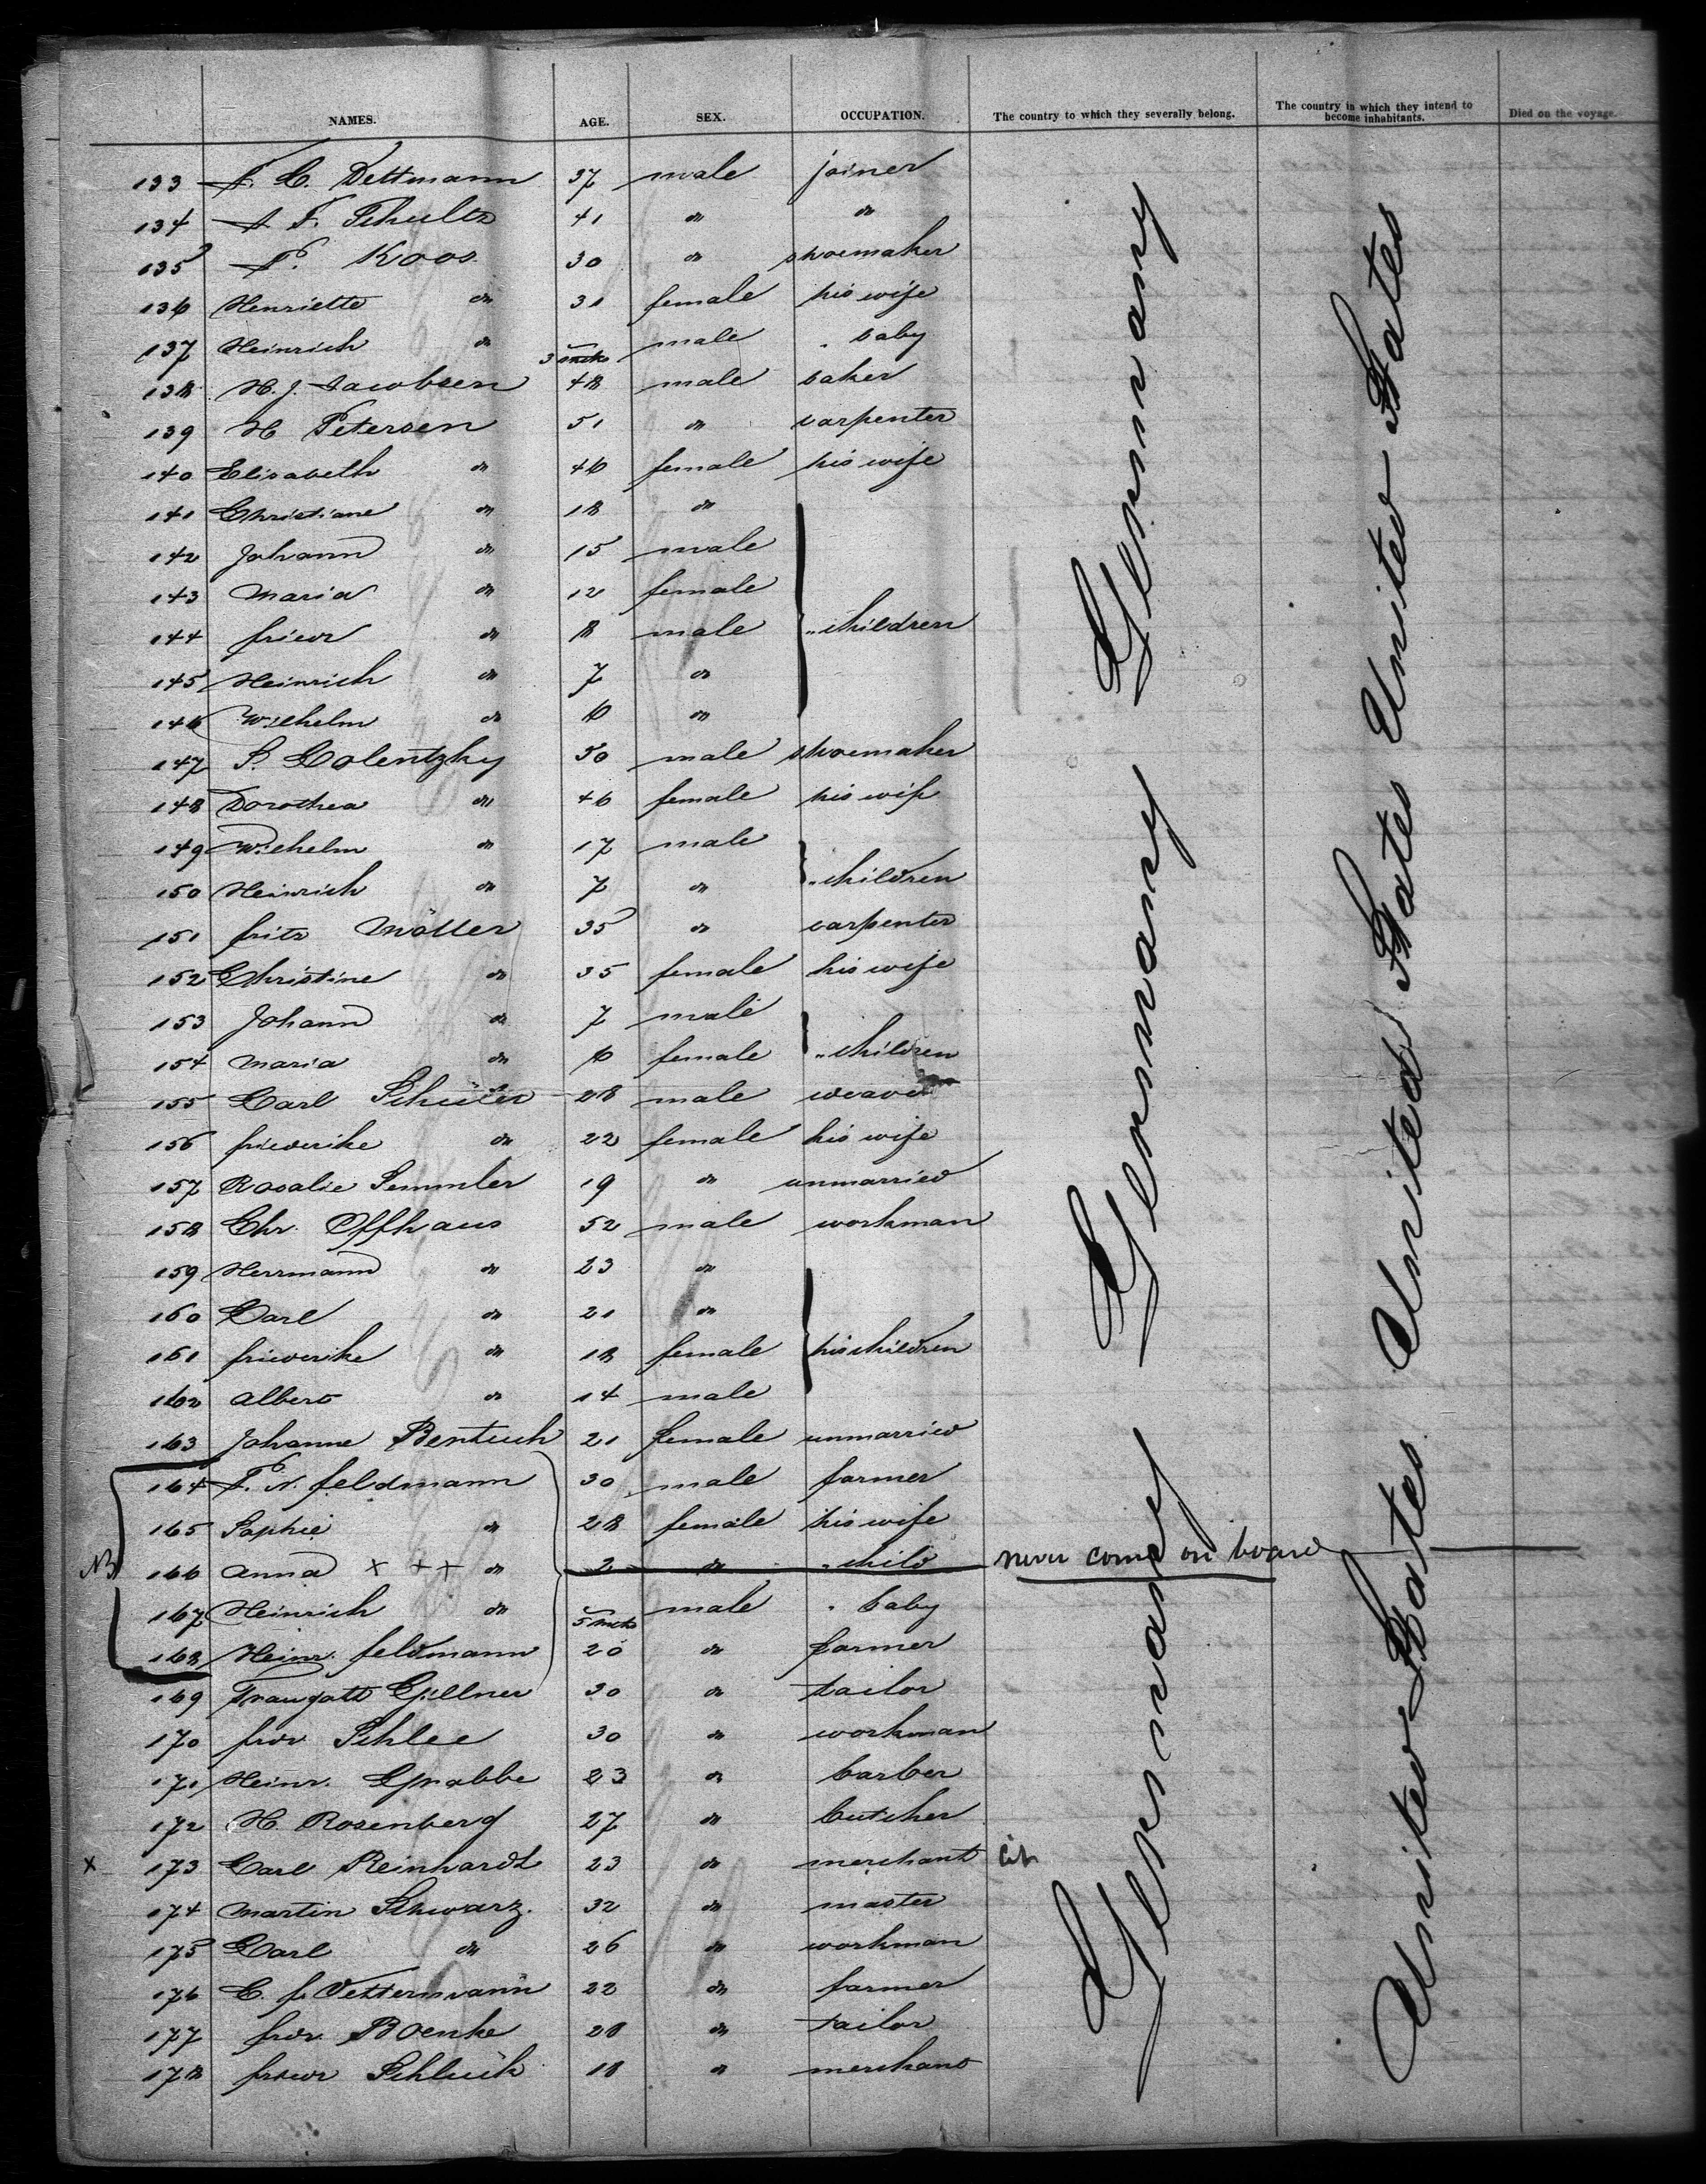 NAMES. AGE. SEX. OCCUPATION. The country to which they severally belong. The country in which they intend to become inhabitants. Died on the voyage.
133 J. C. Dettmann 37 male joiner
134 J. F. Schultz 41 do do
135 P. Koos 30 do shoemaker
136 Henriette do 31 female his wife
137 Heinrich do 3 mths male " baby
138 H. J. Jacobsen 48 male baker
139 H Petersen 51 do carpenter
140 Elisabeth do 46 female his wife
141 Christiane do 18 do
142 Johann do 15 male
143 Maria do 12 female
144 friedr do 8 male " children
145 Heinrich do 7 do
146 Wilhelm do 6 do
147 S. Golentzky 50 male shoemaker
148 Dorothea do 46 female his wife
149 Wilhelm do 17 male
150 Heinrich do 7 do " children
151 fritz Möller 35 do carpenter
152 Christine do 35 female his wife
153 Johann do 7 male
154 Maria do 6 female " children
155 Carl Schüler 28 male weaver
156 friederike do 22 female his wife
157 Rosalie Semmler 19 do unmarried
158 Chr. Offhaus 52 male workman
159 Herrmann do 23 do
160 Carl do 21 do
161 friederike do 18 female his children
162 Albert do 14 male
163 Johanne Bentuch 21 female unmarried
164 P. N. feldmann 30 male farmer
165 Sophie do 28 female his wife
NB 166 Anna x x + do 2 do " child never come on board
167 Heinrich do 5 mths male " baby
168 Heinr. feldmann 20 do farmer
169 Traugott Gillner 30 do tailor
170 frdr Schlee 30 do workman
171 Heinr. Grabbe 23 do barber
172 H. Rosenberg 27 do butcher
x 173 Carl Reinhardt 23 do merchant cit
174 Martin Schwarz. 32 do master
175 Carl do 26 do workman
176 C. f. Vettermann 22 do farmer
177 frdr. Boenke 28 do tailor
178 friedr Schlück 18 do merchant
Germany Germany Germany
United States United States United States